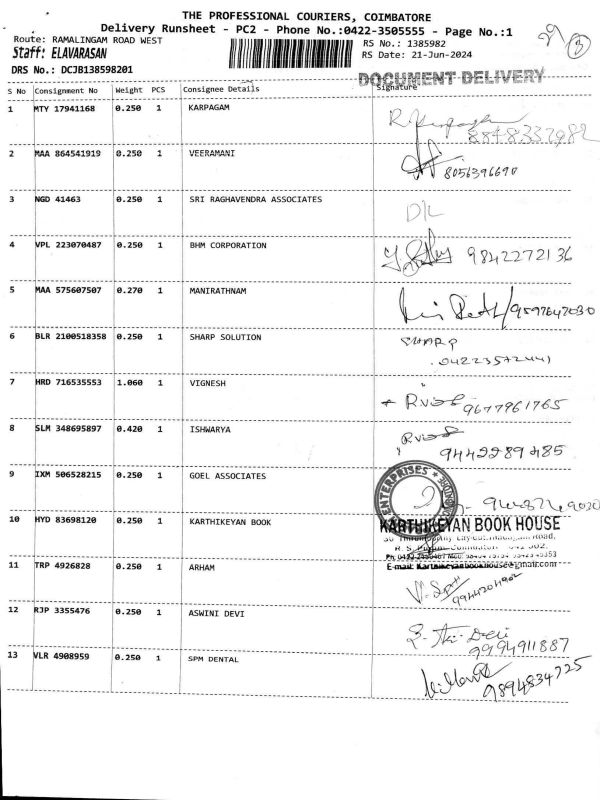 THE PROFESSIONAL COURIERS, COIMBATORE
Delivery Runsheet - PC2 - Phone No.:0422-3505555 - Page No.:1
Route: RAMALINGAM ROAD WEST
RS No.: 1385982
3
Staff: ELAVARASAN
RS Date: 21-Jun-2024
DRS No.: DCJB138598201
DOCUMENT DELIVERY
S No Consignment No Weight PCS Consignee Details Signature
1 MTY 17941168 0.250 1 KARPAGAM
8848337982
2 MAA 864541919 0.250 1 VEERAMANI
8056396690
3 NGD 41463 0.250 1 SRI RAGHAVENDRA ASSOCIATES
D/L
4 VPL 223070487 0.250 1 BHM CORPORATION 9842272136
5 MAA 575607507 0.270 1 MANIRATHNAM
9597647030
6 BLR 2100518358 0.250 1 SHARP SOLUTION SHARP
04223572441
7 HRD 716535553 1.060 1 VIGNESH
9677961765
8 SLM 348695897 0.420 1 ISHWARYA
9442289485
9 IXM 506528215 0.250 1 GOEL ASSOCIATES
ENTERPRISES
10 HYD 83698120 0.250 1 KARTHIKEYAN BOOK KARTHIKEYAN BOOK HOUSE
E-mail: Karthikeyanbookhouse@gmail.com
11 TRP 4926828 0.250 1 ARHAM
9944204902
12 RJP 3355476 0.250 1 ASWINI DEVI
Devi
9994911887
13 VLR 4908959 0.250 1 SPM DENTAL
9894834725